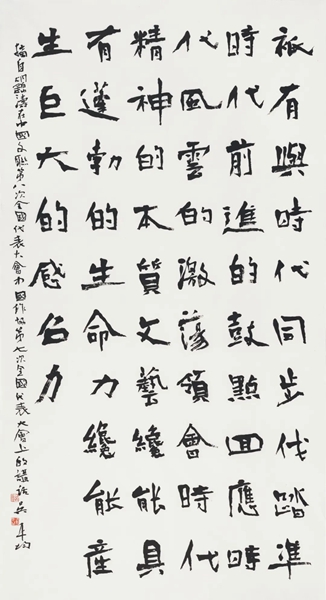 祇有與時代同步伐踏準
時代前進的鼓點回應時
代風雲的激蕩領會時代
精神的本質文藝纔能具
有蓬勃的生命力纔能產
生巨大的感召力
摘自胡錦濤在中國文聯第八次全國代表大會中國作協第七次全國代表大會上的講話